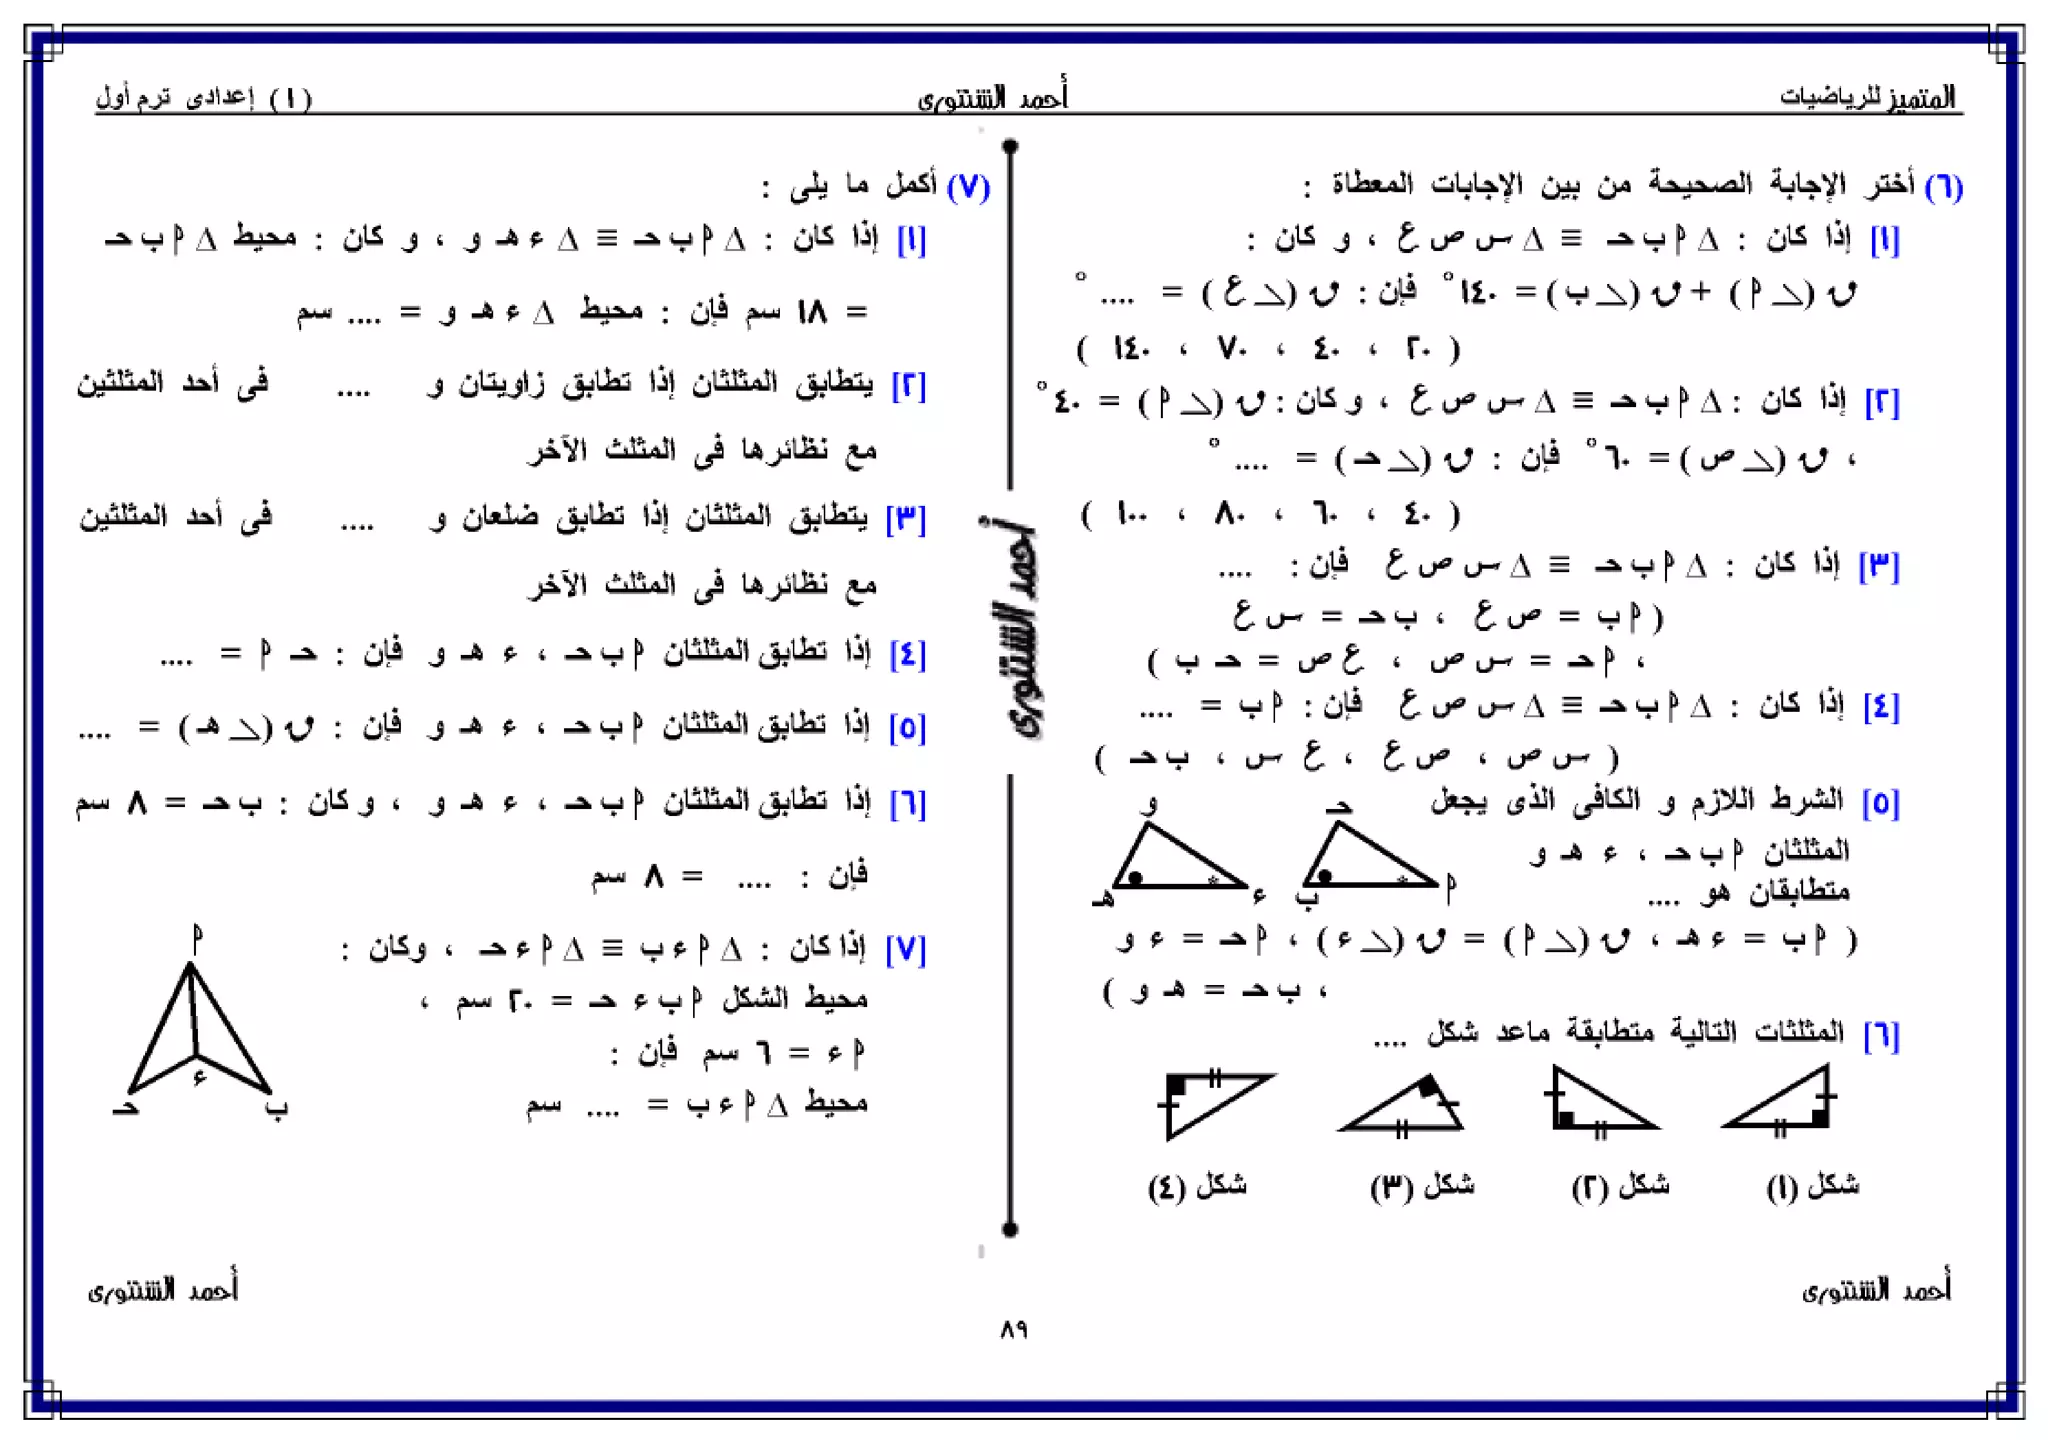 المتميز للرياضيات
أحمد الشنتوري
(١) إعدادى ترم أول
(٦) أختر الإجابة الصحيحة من بين الإجابات المعطاة :
[١] إذا كان : ∆ ٩ ب حـ ≡ ∆ س ص ع ، و كان :
ق (ㄥ ٩) + ق (ㄥ ب) = ١٤٠° فإن : ق (ㄥ ع) = .... °
( ٢٠ ، ٤٠ ، ٧٠ ، ١٤٠ )
[٢] إذا كان : ∆ ٩ ب حـ ≡ ∆ س ص ع ، و كان : ق (ㄥ ٩) = ٤٠°
، ق (ㄥ ص) = ٦٠° فإن : ق (ㄥ حـ) = .... °
( ٤٠ ، ٦٠ ، ٨٠ ، ١٠٠ )
[٣] إذا كان : ∆ ٩ ب حـ ≡ ∆ س ص ع فإن : ....
( ٩ ب = ص ع ، ب حـ = س ع
، ٩ حـ = س ص ، ع ص = حـ ب )
[٤] إذا كان : ∆ ٩ ب حـ ≡ ∆ س ص ع فإن : ٩ ب = ....
( س ص ، ص ع ، ع س ، ب حـ )
[٥] الشرط اللازم و الكافى الذى يجعل
المثلثان ٩ ب حـ ، ء هـ و
متطابقان هو ....
حـ
و
٩
ب
ء
هـ
( ٩ ب = ء هـ ، ق (ㄥ ٩) = ق (ㄥ ء) ، ٩ حـ = ء و
، ب حـ = هـ و )
[٦] المثلثات التالية متطابقة ماعد شكل ....
شكل (١) شكل (٢) شكل (٣) شكل (٤)
أحمد الشنتوري
(٧) أكمل ما يلى :
[١] إذا كان : ∆ ٩ ب حـ ≡ ∆ ء هـ و ، و كان : محيط ∆ ٩ ب حـ
= ١٨ سم فإن : محيط ∆ ء هـ و = .... سم
[٢] يتطابق المثلثان إذا تطابق زاويتان و .... فى أحد المثلثين
مع نظائرها فى المثلث الآخر
[٣] يتطابق المثلثان إذا تطابق ضلعان و .... فى أحد المثلثين
مع نظائرها فى المثلث الآخر
[٤] إذا تطابق المثلثان ٩ ب حـ ، ء هـ و فإن : حـ ٩ = ....
[٥] إذا تطابق المثلثان ٩ ب حـ ، ء هـ و فإن : ق (ㄥ هـ) = ....
[٦] إذا تطابق المثلثان ٩ ب حـ ، ء هـ و ، و كان : ب حـ = ٨ سم
فإن : .... = ٨ سم
[٧] إذا كان : ∆ ٩ ء ب ≡ ∆ ٩ ء حـ ، وكان :
محيط الشكل ٩ ب ء حـ = ٢٠ سم ،
٩ ء = ٦ سم فإن :
محيط ∆ ٩ ء ب = .... سم
٩
ء
ب
حـ
أحمد الشنتوري
أحمد الشنتوري
٨٩